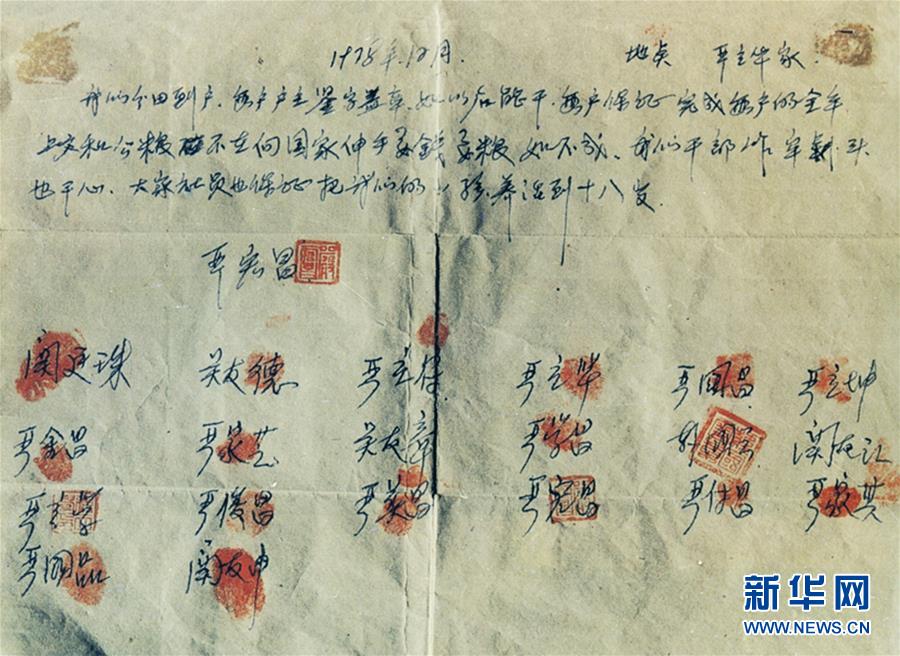 1978年12月. 地点 严立华家.
我们分田到户.每户户主签字盖章.如以后能干.每户保证完成每户的全年
上交和公粮 不在向国家伸手要钱要粮 如不成.我们干部作牢 头
也干心.大家社员也保证把我们的小孩养活到十八岁.
严宏昌
関廷珠 关友德 严立符 严立华 严国昌 严立坤
严金昌 严家芝 关友章 严学昌 韩国云 関友江
严立学 严俊昌 严美昌 严宏昌 严付昌 严家其
严国品 関友申
新华网
WWW.NEWS.CN